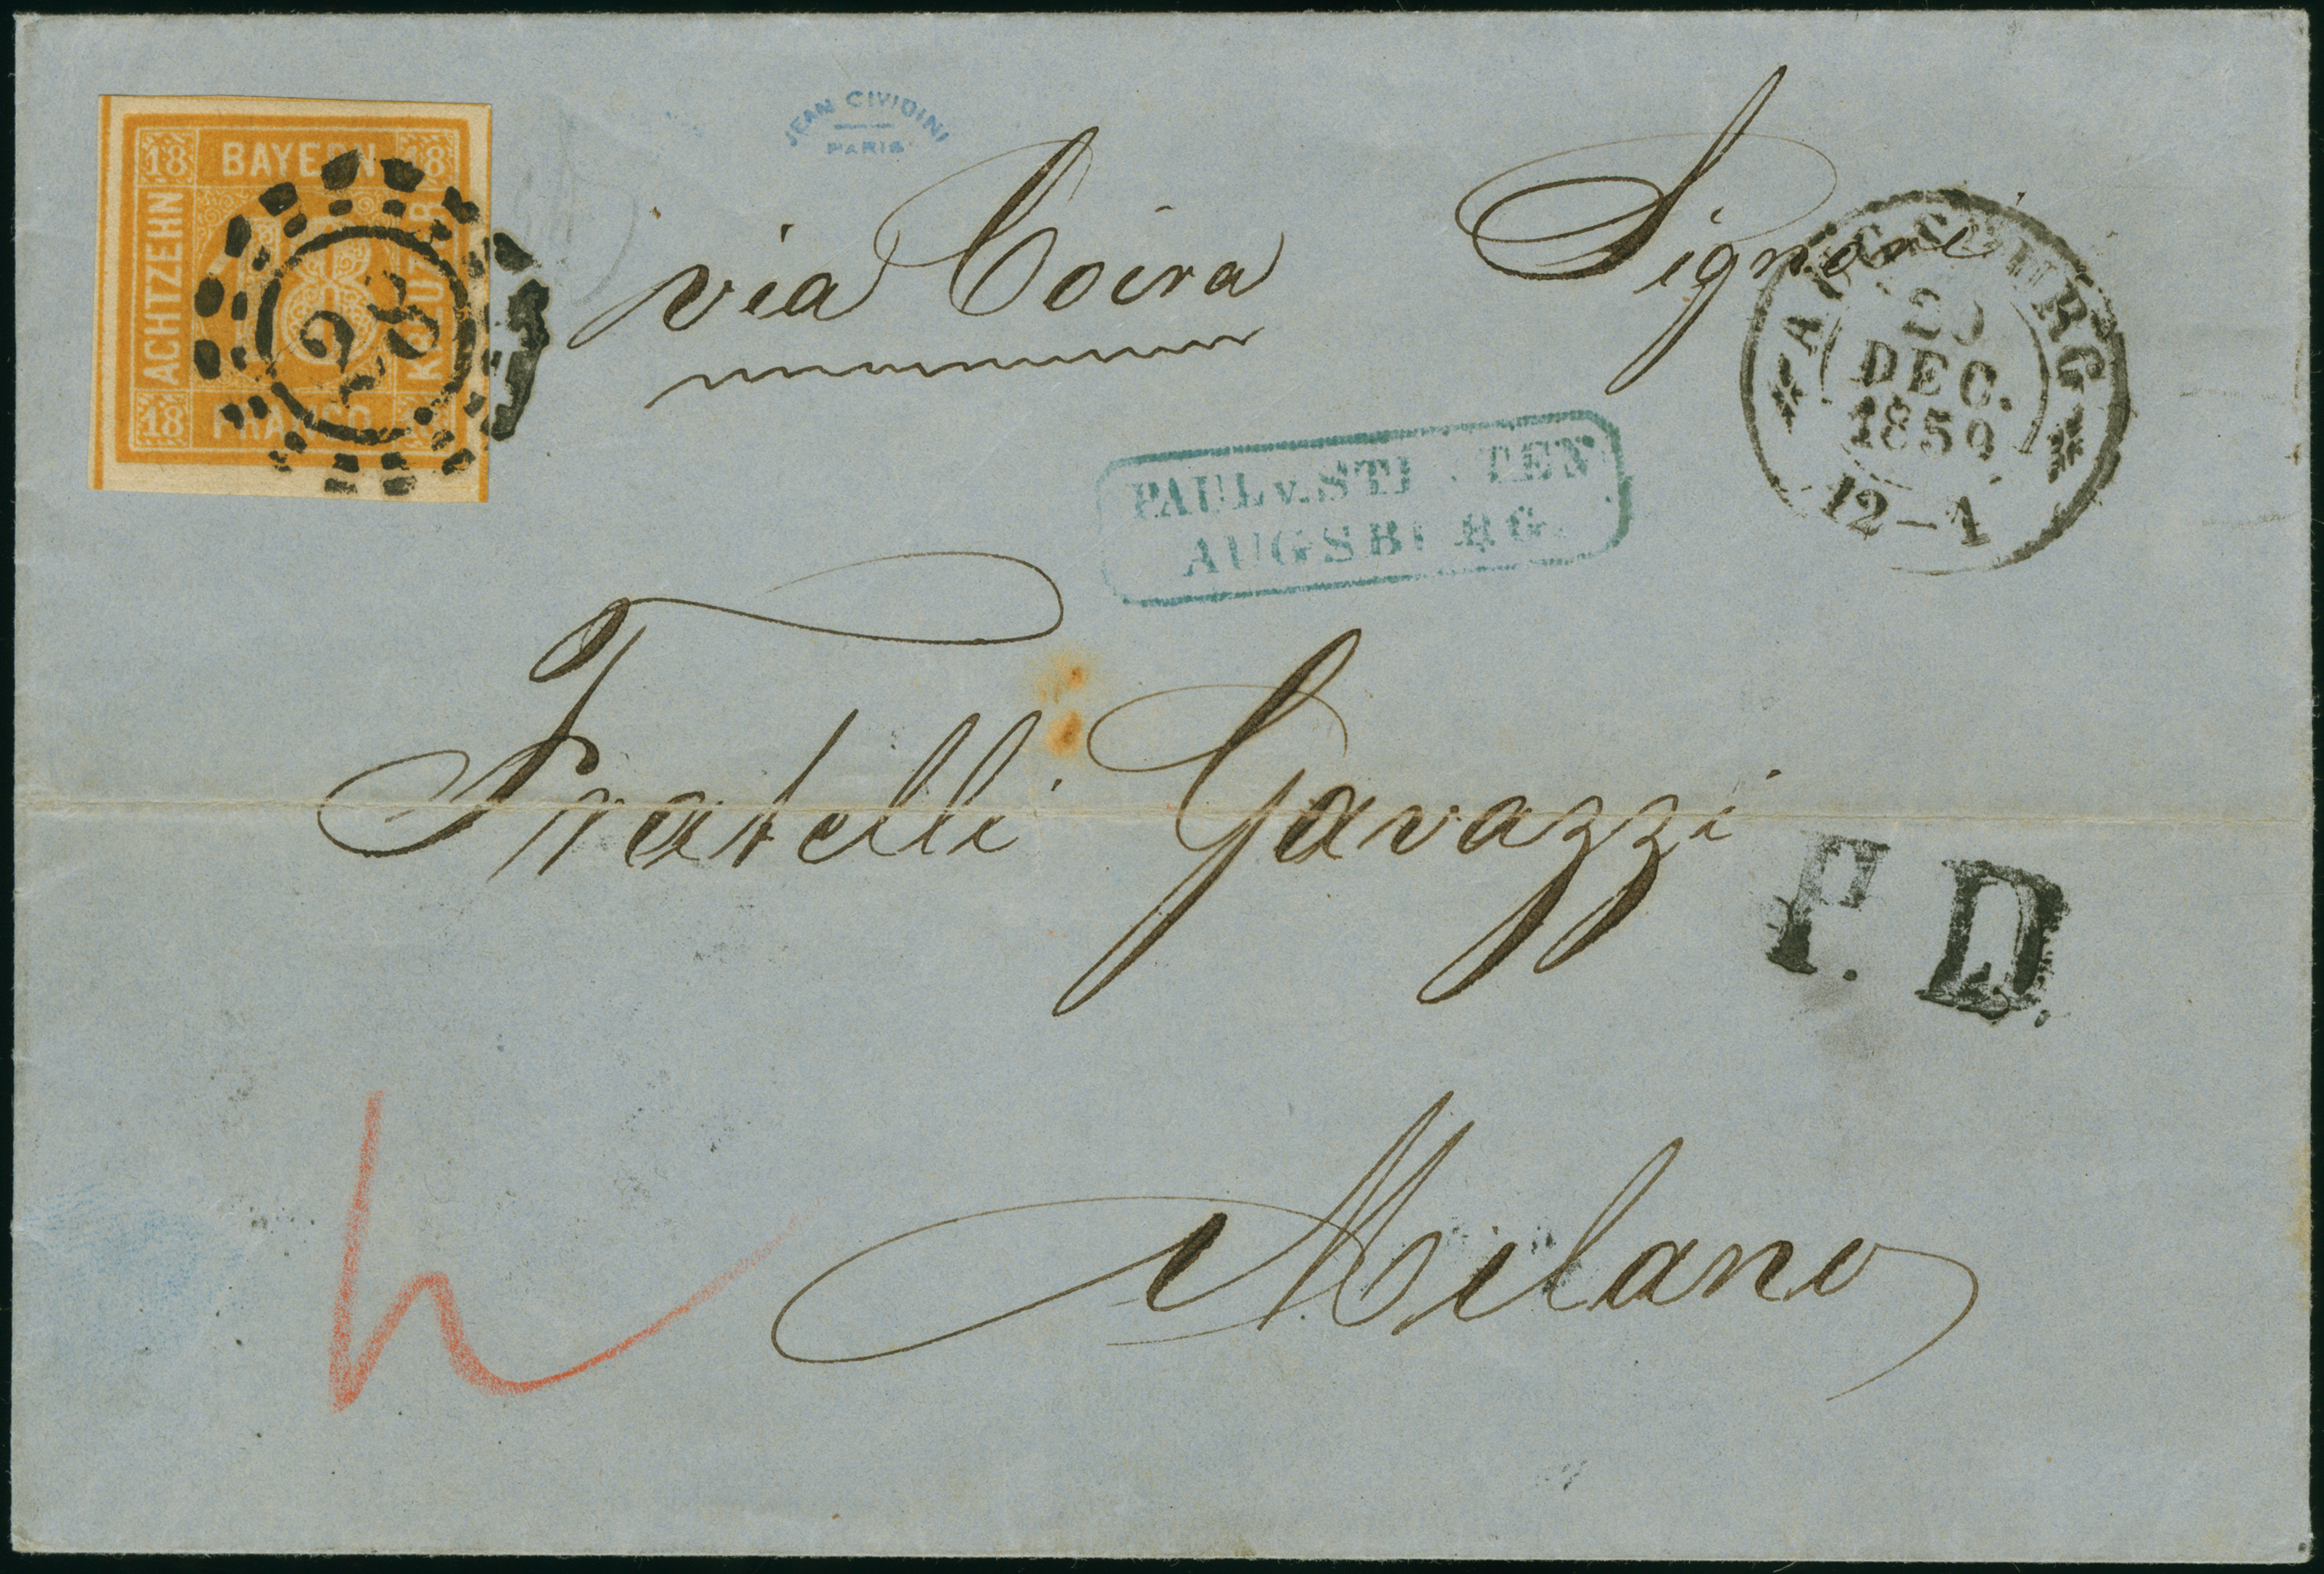 18 BAYERN 18
ACHTZEHN
KREUZER
18 FRANCO
28
JEAN CIVIDINI
PARIS
via Coira
Signori
AUGSBURG
DEC.
1859
12-1
PAUL v.
AUGSBURG.
Fratelli Gavazzi
P. D.
Milano